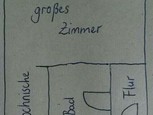 großes
Zimmer
Kochnische
Bad
Flur